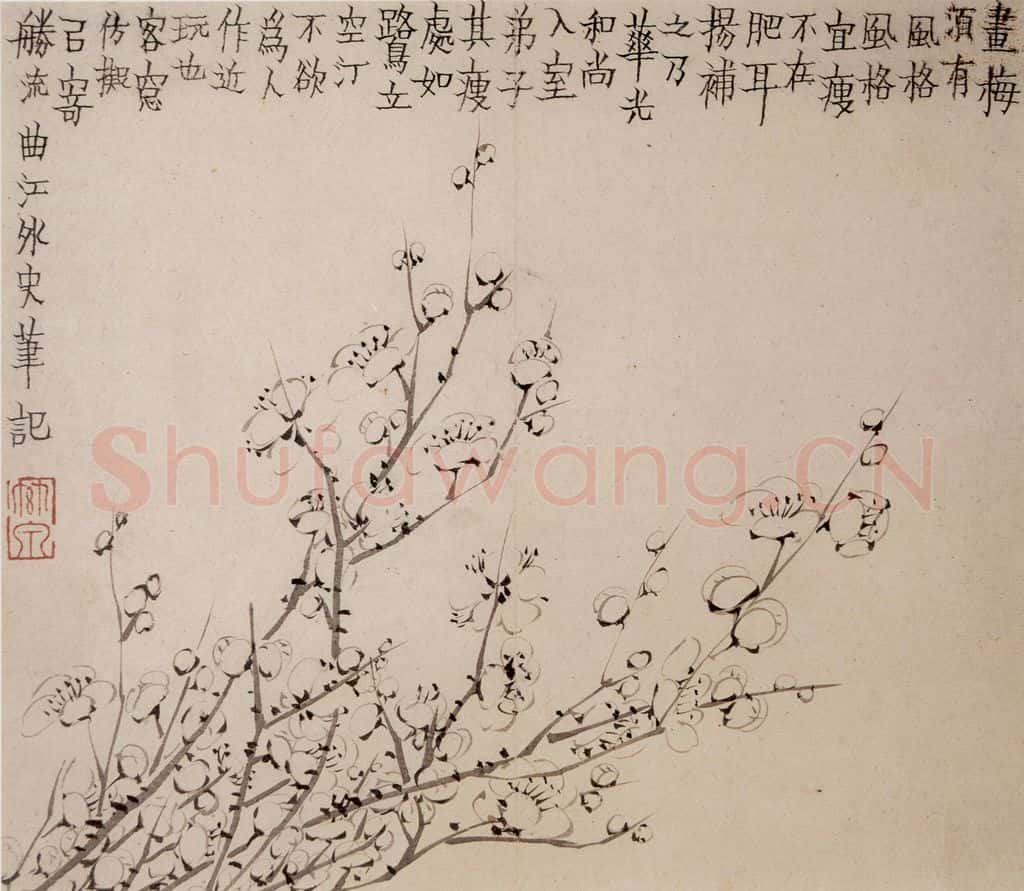 畫梅
須有
風格
風格
宜瘦
不在
肥耳
揚補
之乃
蕐光
和尚
入室
弟子
其瘦
處如
鷺立
空汀
不欲
爲人
作近
玩也
客窓
仿擬
己寄
勝流 曲江外史筆記
Shufawang.CN